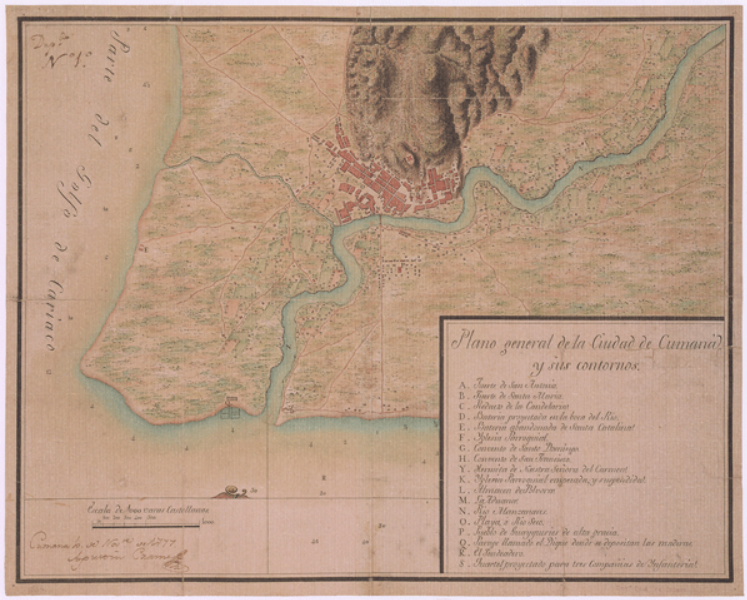 Parte del Golfo de Cariaco
Plano general de la Ciudad de Cumaná
y sus contornos.
A. Fuerte de San Antonio
B. Fuerte de Santa Maria
C. Reducto de la Candelaria
D. Bateria proyectada en la boca del Rio
E. Bateria abandonada de Santa Catalina
F. Yglesia Parroquial
G. Convento de Santo Domingo
H. Convento de San Francisco
Y. Hermita de Nuestra Señora del Carmen
K. Yglesia Parroquial
L. Almacen de Polvora
M. La Aduana
N. Rio Manzanares
O. Playa, o Rio Seco
P. Pueblo de Guayquerias
Q. Parage llamado el Dique donde se depositan las maderas
R. El Fondeadero
S. Quartel proyectado para tres Compañias de Infanteria
Escala de Varas Castellanas
Cumaná